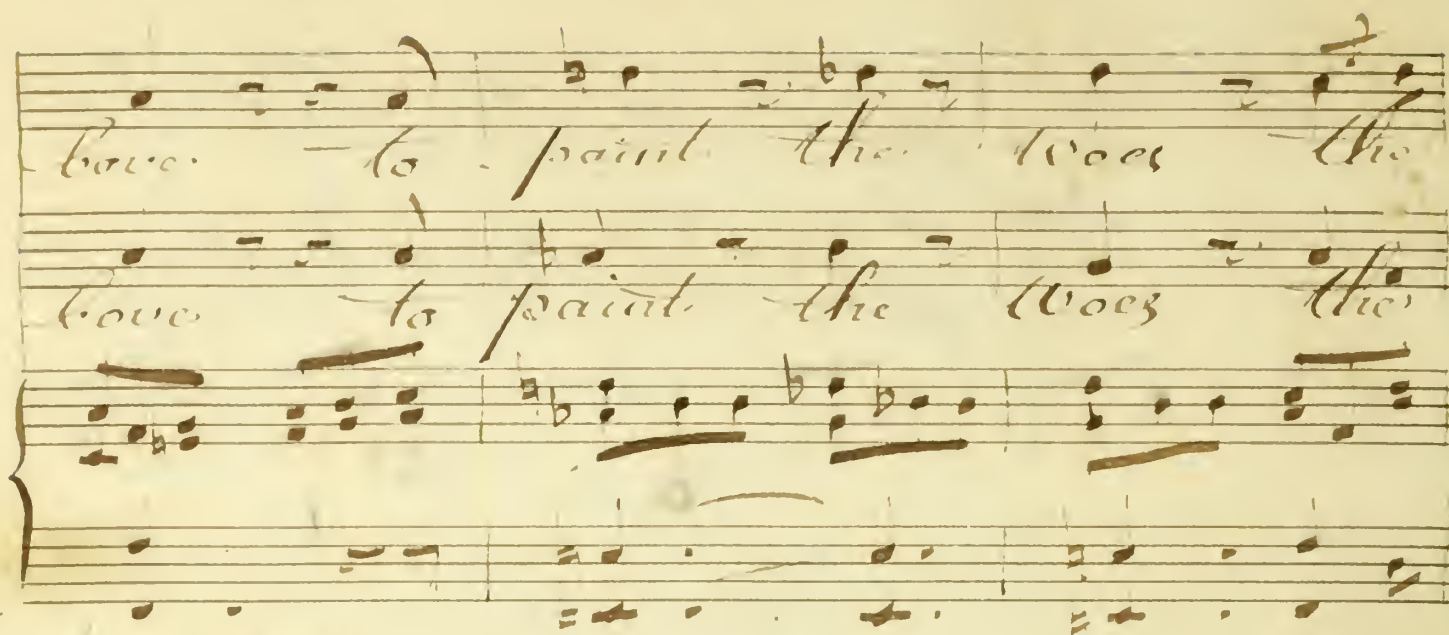 bove to paint the woes the
bove to paint the woes the